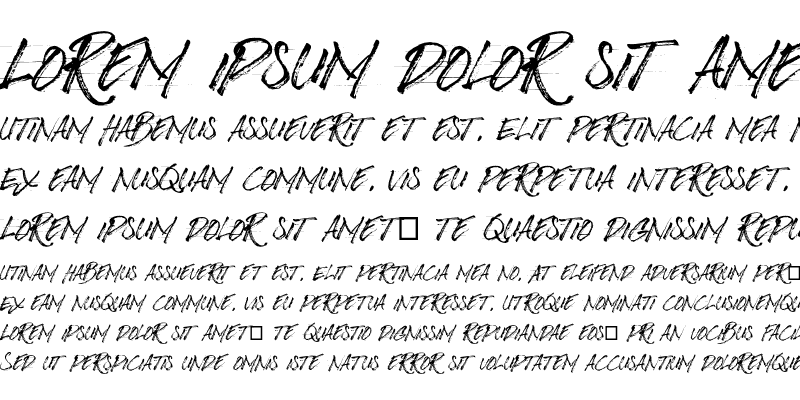 LOREM IPSUM DOLOR SIT AME
UTINAM HABEMUS ASSUEVERIT ET EST. ELIT PERTINACIA MEA N
EX EAM NUSQUAM COMMUNE. VIS EU PERPETUA INTERESSET.
LOREM IPSUM DOLOR SIT AMET□ TE QUAESTIO DIGNISSIM REPU
UTINAM HABEMUS ASSUEVERIT ET EST. ELIT PERTINACIA MEA NO. AT ELEIFEND ADVERSARIUM PER□
EX EAM NUSQUAM COMMUNE. VIS EU PERPETUA INTERESSET. UTROQUE NOMINATI CONCLUSIONEMQU
LOREM IPSUM DOLOR SIT AMET□ TE QUAESTIO DIGNISSIM REPUDIANDAE EOS□ PRI AN VOCIBUS FACIL
SED UT PERSPICIATIS UNDE OMNIS ISTE NATUS ERROR SIT VOLUPTATEM ACCUSANTIUM DOLOREMQUE